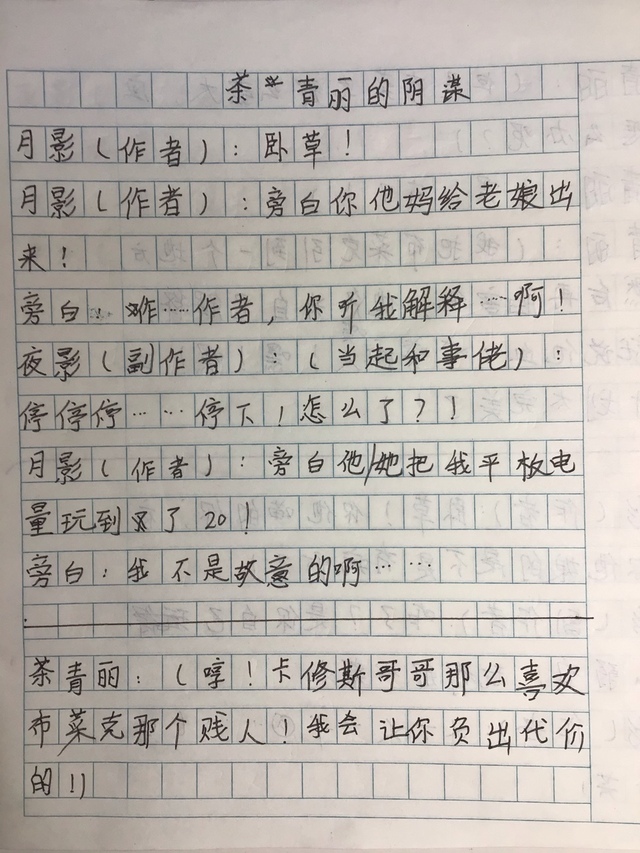 茶*青丽的阴谋
月影(作者):卧草!
月影(作者):旁白你他妈给老娘出
来!
旁白:作……作者,你听我解释……啊!
夜影(副作者):(当起和事佬):
停停停……停下!怎么了?!
月影(作者):旁白他/她把我平板电
量玩到了20!
旁白:我不是故意的啊……
茶青丽:(哼!卡修斯哥哥那么喜欢
布莱克那个贱人!我会让你负出代价
的!)